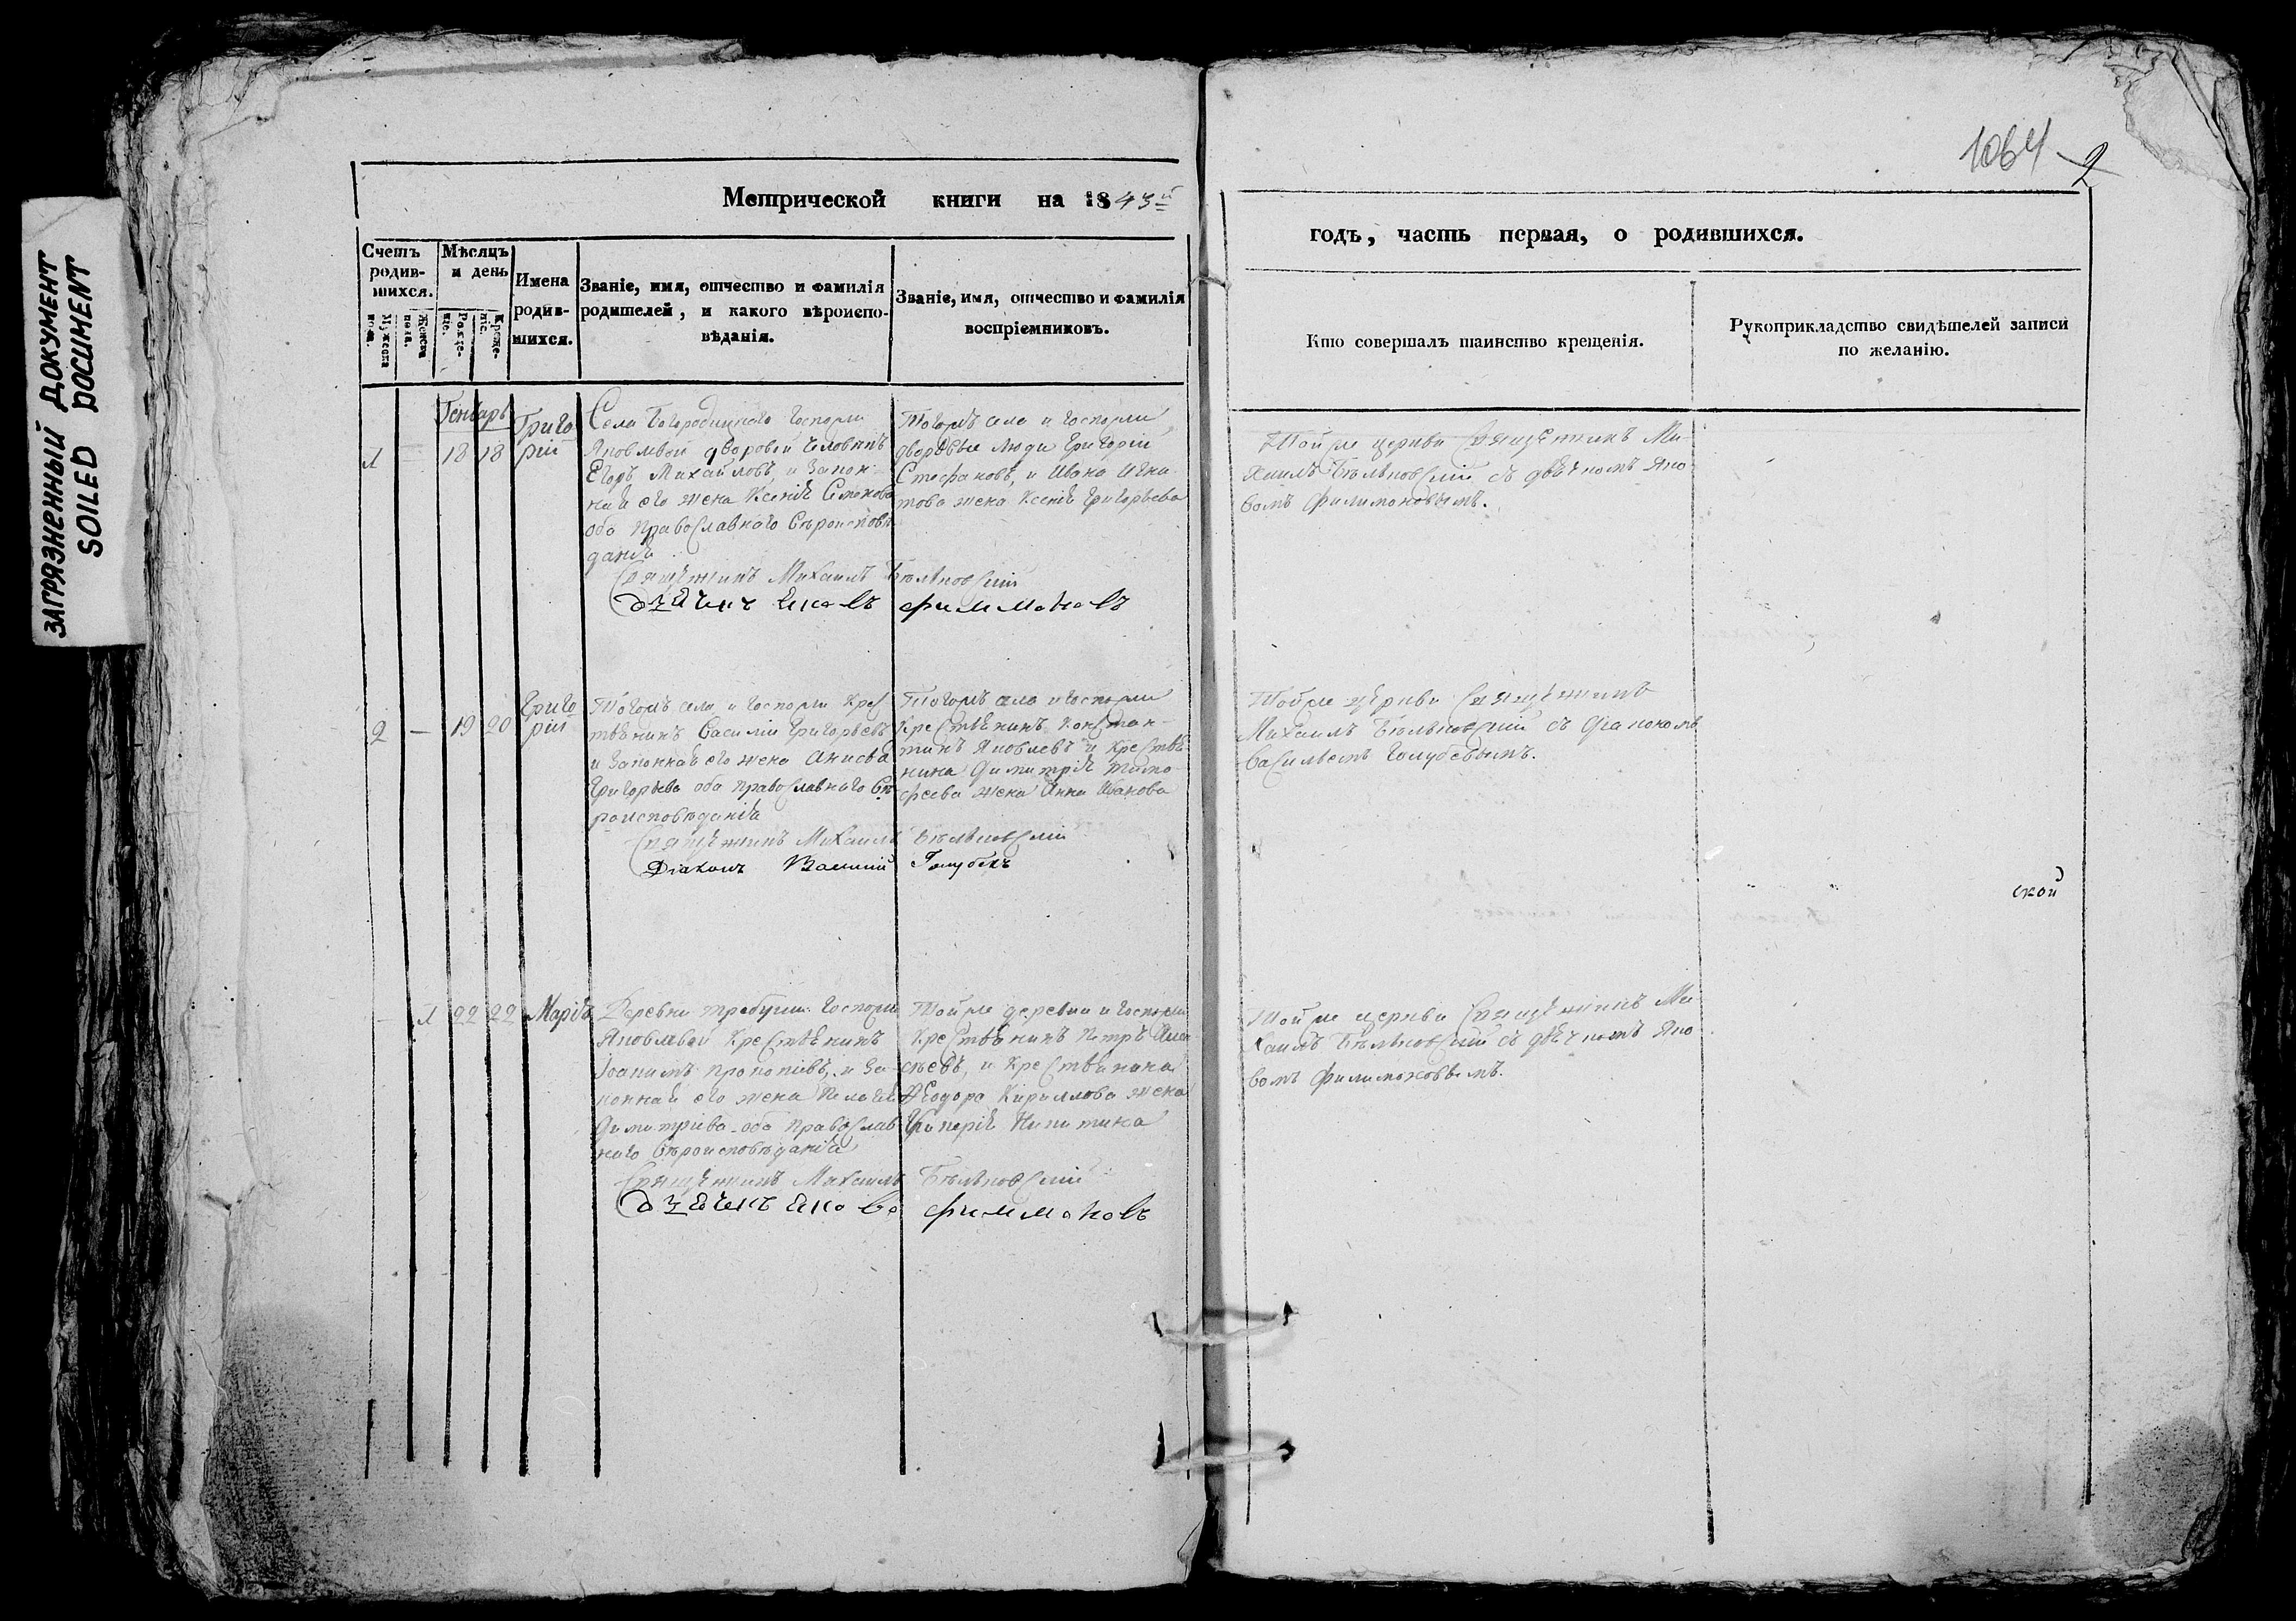 ЗАГРЯЗНЕННЫЙ ДОКУМЕНТ
SOILED DOCUMENT
1064 2
Метрической книги на 1843й
годъ, часть первая, о родившихся.
Счетъ родившихся.
Мужеска пола.
Женска пола.
Мѣсяцъ и день
Рожденіе.
Крещеніе.
Имена
родив-
шихся.
Званіе, имя, отчество и фамилія
родителей, и какого вѣроиспо-
вѣданія.
Званіе, имя, отчество и фамилія
воспріемниковъ.
Кто совершалъ таинство крещенія.
Рукоприкладство свидѣтелей записи
по желанію.
Генварь
1 — 18 18
Григо
рій
Села Богородицкаго Госпожи
Яковлвой дворовой человѣкъ
Егоръ Михайловъ, и закон-
ная его жена Ксенія Семенова
оба православнаго вѣроисповѣ
данія
Священникъ Михаилъ
дьячекъ Яковъ Филимоновъ
Тогожъ села и госпожи
дворовые люди Григорій
Стефановъ, и Ивана Игна
това жена Ксенія Григорьева
Тойже церкви Священникъ Ми-
хаилъ съ дьячкомъ Яко
вомъ Филимоновымъ.
2 — 19 20
Григо
рій
Тогожъ села и госпожи Крес
тьянинъ Василій Григорьевъ
и законная его жена Анисья
Григорьева оба православнаго вѣ
роисповѣданія
Священникъ Михаилъ
Діаконъ Василій Голубевъ
Тогожъ села и госпожи
Крестьянинъ Констан-
тинъ Яковлевъ и крестья
нина Димитрія Тимо
феева жена Анна Иванова
Тойже церкви Священникъ
Михаилъ съ діакономъ
Васильемъ Голубевымъ.
ской
— 1 22 22
Марія
Деревни Госпожи
Яковлвой Крестьянинъ
Іоакимъ Прокопіевъ, и за-
конная его жена Пелагея
Димитріева оба православ
наго вѣроисповѣданія
Священникъ Михаилъ
дьячекъ Яковъ Филимоновъ
Тойже деревни и госпожи
Крестьянинъ Петръ Але
сѣевъ, и крестьянина
Феодора Кириллова жена
Гликерія Никитина
Тойже церкви Священникъ Ми-
хаилъ съ дьячкомъ Яко
вомъ Филимоновымъ.